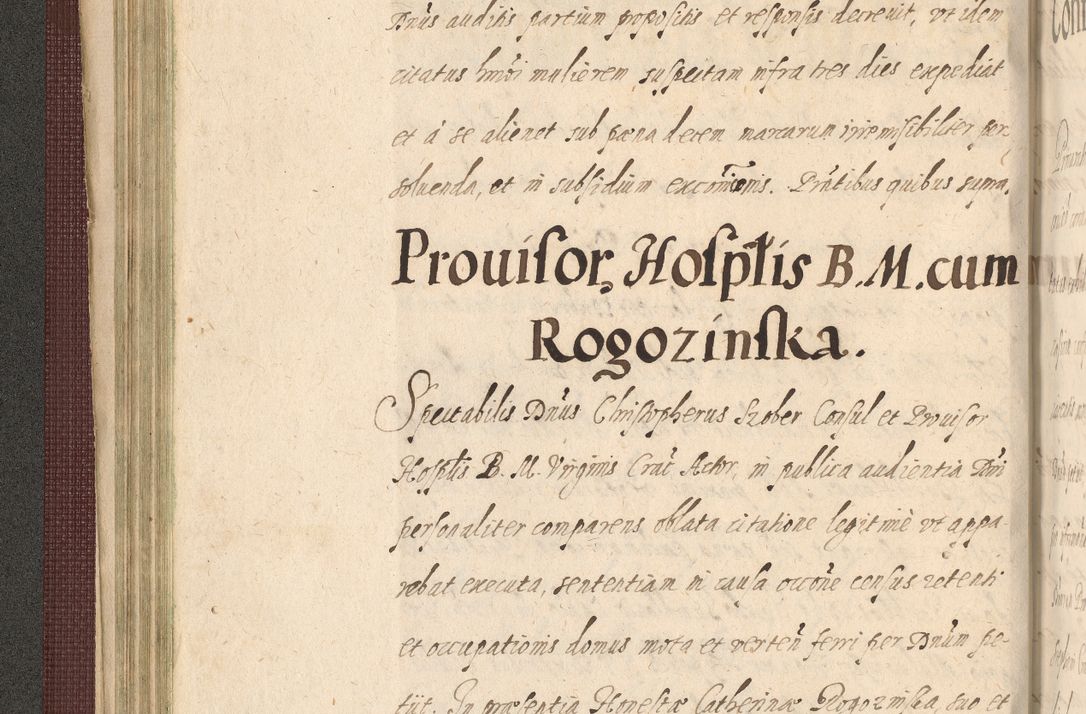 Dnūs auditis partium propositis et responsis decreuit, vt idem
citatus hmōi mulierem suspectam infra tres dies expediat
et á se alienet sub pœna decem marcarum irremisibiliter per
soluenda, et in subsidium excōmīonis. Prn̄tibus quibus supra.
Prouisor, Hosptłis B. M. cum
Rogozinska.
Spectabilis Dnūs Christopherus Szober Consul et Prouisor
Hosptłis B. M. Virginis Crac̄ Actor, in publica audientia Dn̄i
personaliter comparens oblata citatione legitimè vt appa-
rebat executa, sententiam in causa occōne census retenti
et occupationis domus mota et verten̄ ferri per Dnūm pe-
tijt. In præsentia Honestæ Catherinæ Rogozinska suo et